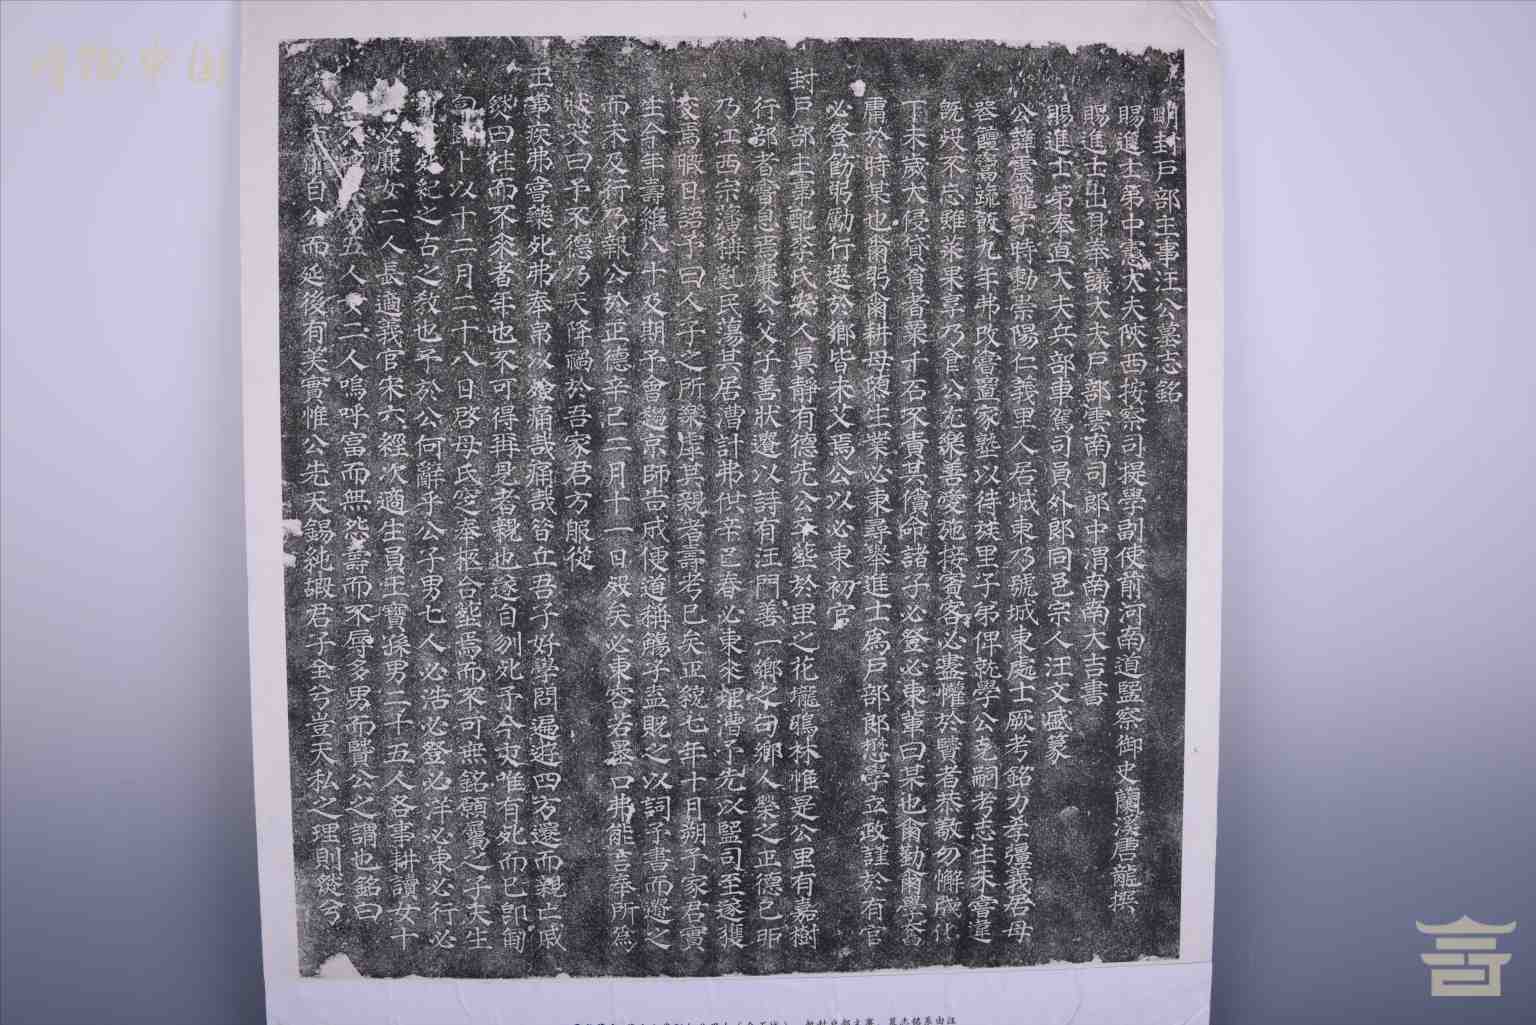 明封戶部主事汪公墓志銘
賜進士第中憲大夫陝西按察司提學副使前河南道監察御史蘭溪唐龍撰
賜進士出身奉議大夫戶部雲南司郎中渭南南大吉書
賜進士第奉直大夫兵部車駕司員外郎同邑宗人汪文盛篆
公諱震龍字時動崇陽仁義里人居城東乃號城東處士厥考銘力孝彊義君母
器饘鬻跪飯九年弗改嘗置家塾以待族里子弟俾就學公克嗣考志生未嘗違
既歿不忘雖菜果享乃食公尤樂善愛施接賓客必盡懽於賢者恭敬勿懈成化
丁未歲大侵貸貧者粟千石不責其償命諸子必登必東輩曰某也爾勤爾學奮
庸於時某也爾躬爾耕毋隳生業必東尋舉進士為戶部郎懋學立政謹於有官
必登飭躬勵行選於鄉皆未艾焉公以必東初官
封戶部主事配李氏安人真靜有德先公卒塟於里之花壠鴉林惟是公里有嘉樹
行部者嘗息焉廉公父子善狀遺以詩有汪門善一鄉之句鄉人榮之正德己卯
乃江西宗藩稱亂民蕩其居漕計弗供辛巳春必東來理漕予先以監司至遂獲
交焉暇日語予曰人子之所樂虖其親者壽考已矣正統七年十月朔予家君實
生今年壽維八十及期予會趨京師告成便道稱觴子盍貺之以詞予書而遺之
而未及行乃報公於正德辛巳二月十一日歿矣必東容若墨口弗能言奉所為
狀哭曰予不德乃天降禍於吾家君方服從
王事疾弗嘗藥死弗奉帛以殮痛哉痛哉昔丘吾子好學問遍遊四方還而親亡戚
然曰往而不來者年也不可得再見者親也遂自刎死予今也唯有死而已即匍
匐歸卜以十二月二十八日啓母氏窆奉柩合塟焉而不可無銘願屬之子夫生
紀之古之教也予於公何辭乎公子男七人必浩必登必洋必東必行必
必廉女二人長適義官宋六經次適生員王寶孫男二十五人各事耕讀女十
五人女二人嗚呼富而無怨壽而不辱多男而賢公之謂也銘曰
自公而延後有美實惟公先天錫純嘏君子全兮豈天私之理則然兮